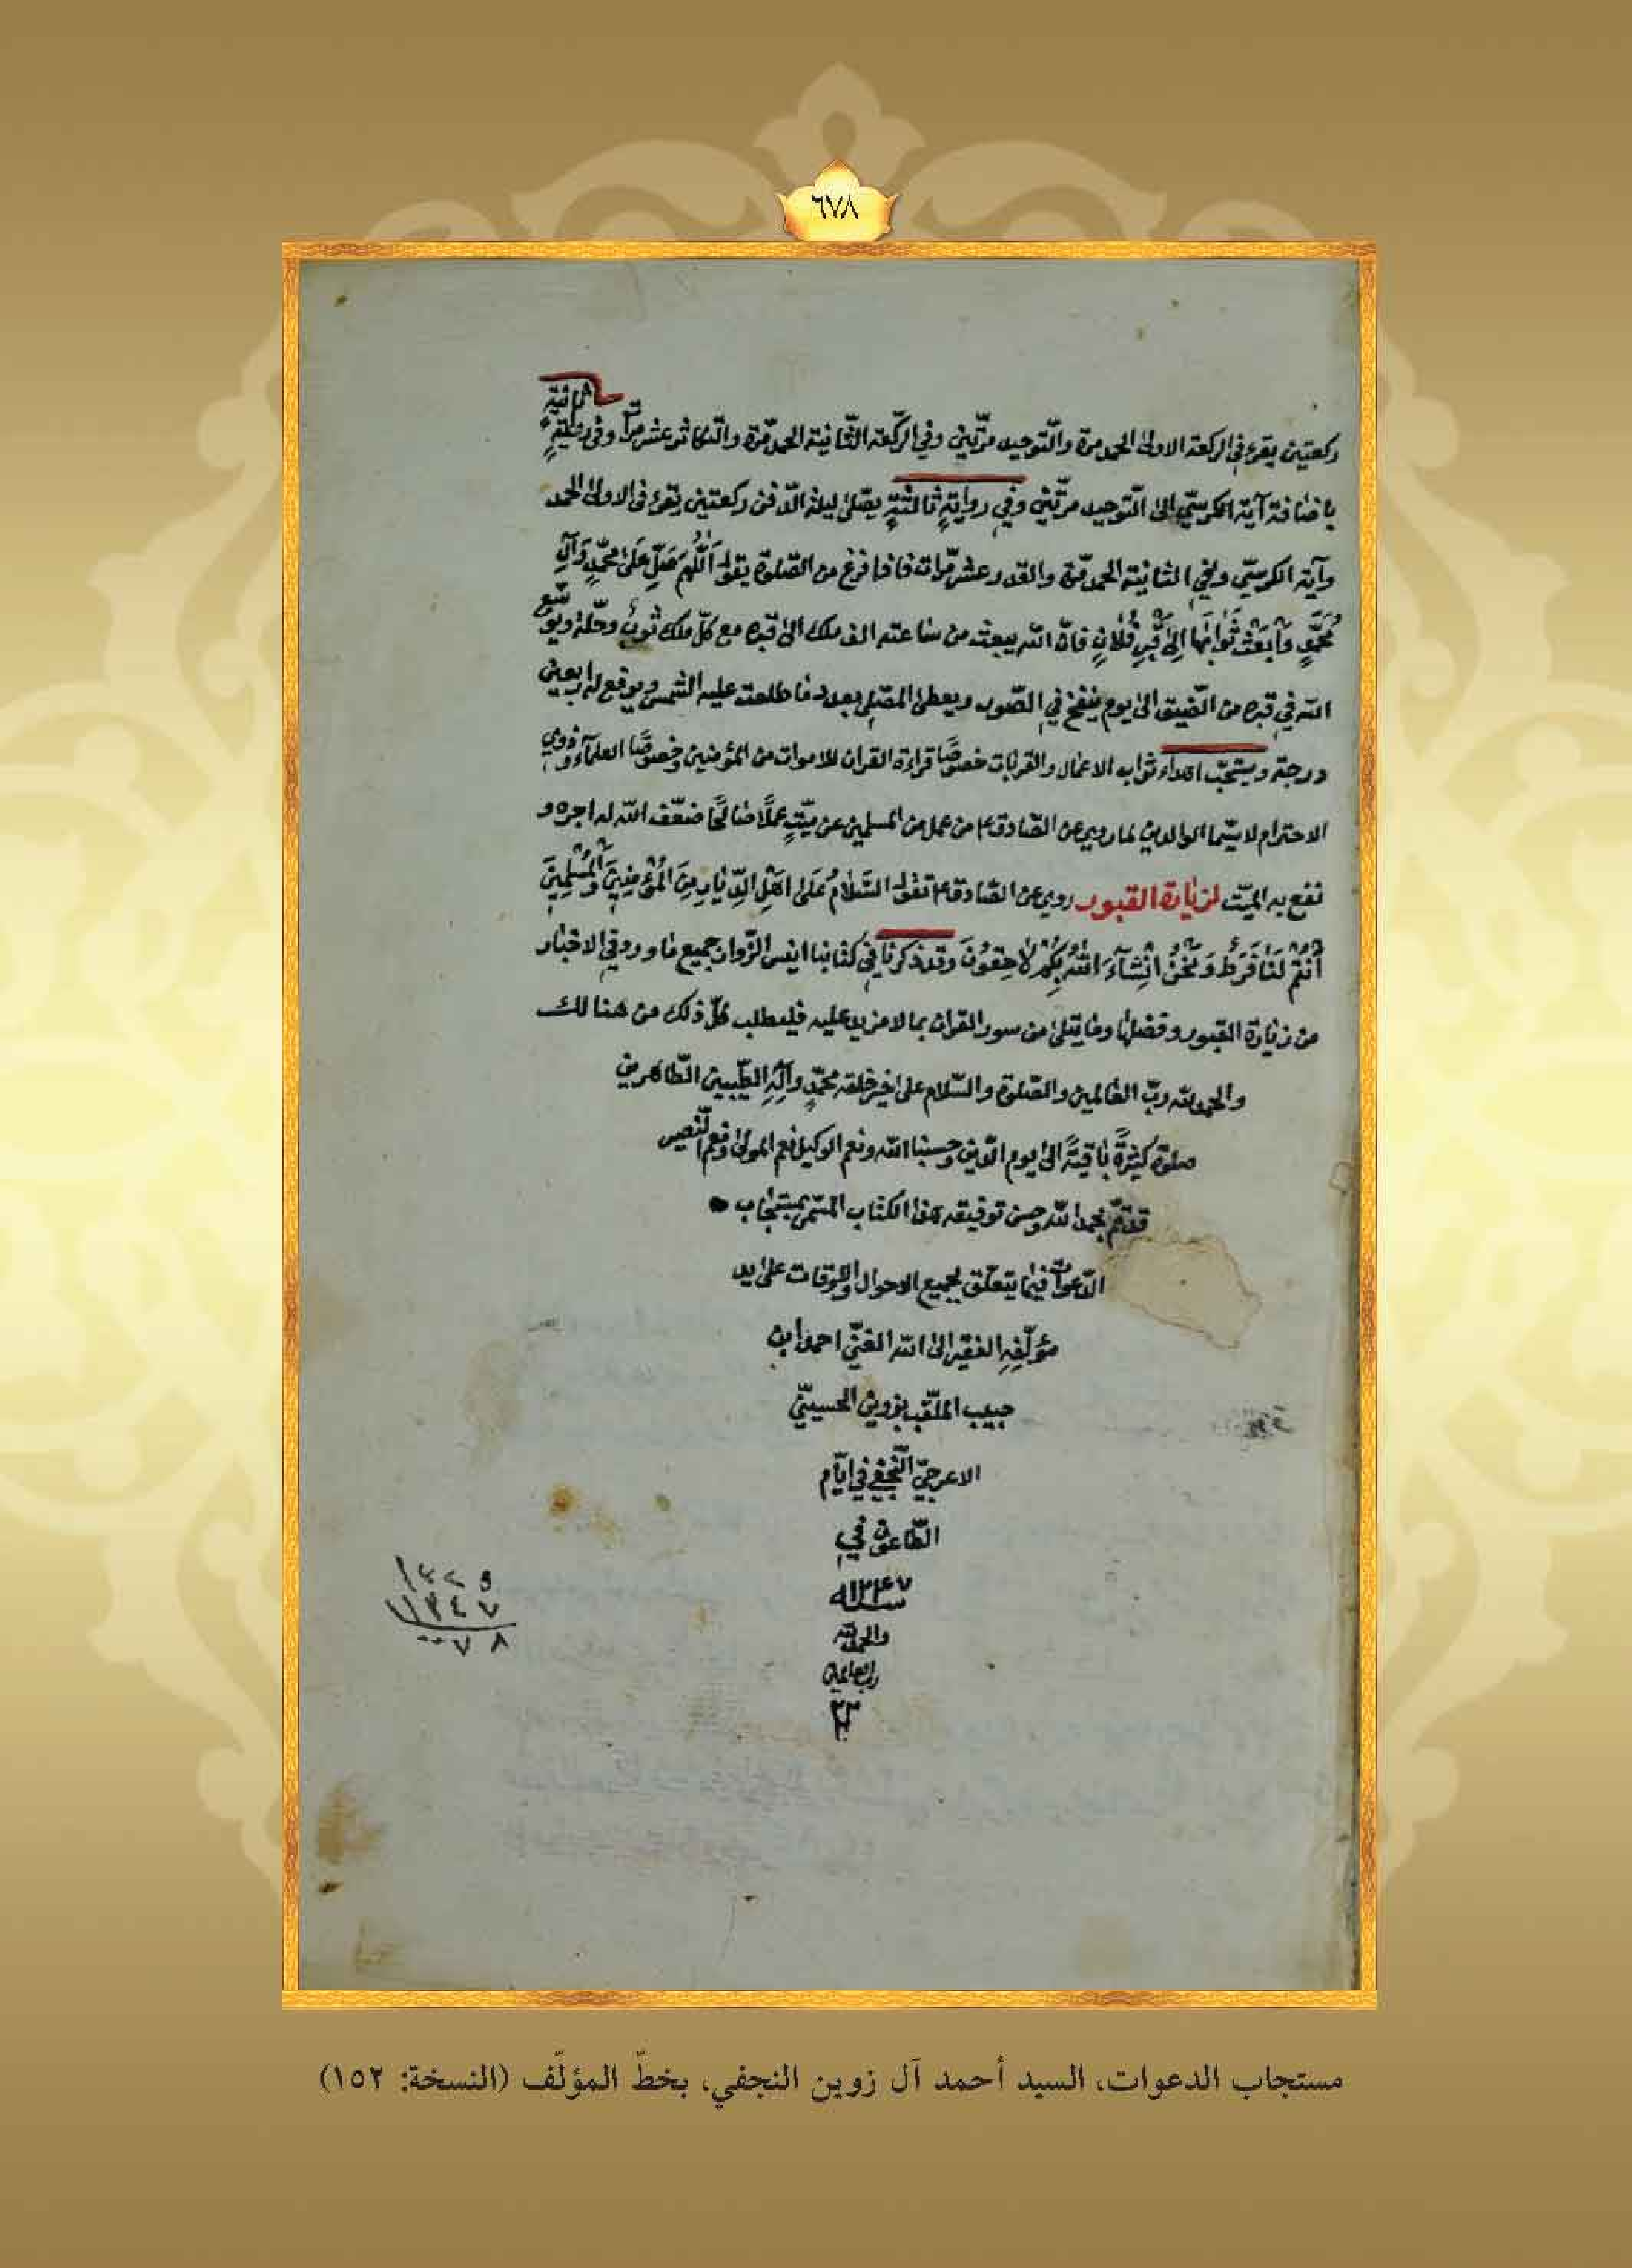 ٦٧٨
ركعتين يقرء في الركعة الاولى الحمد مرة والتّوحيد مرّتين وفي الركّعة الثّانية الحمد مرّة والتّكاثر عشر مراّت وفي رواية ثانية
باضافة آية الكرسّي الى التّوحيد مرّتين وفي روايةٍ ثالثةٍ يصّلى ليلة الدّفن ركعتين يقرء في الاولى الحمد
وآية الكرسّي وفي الثانية الحمد مرّة والقدر عشر مرّات فاذا فرغ من الصّلوة يقول اَللّهُمَ صَلّ عَلىٰ محمّدٍ وَآلِ
مُحَمَّدٍ وَابْعَثْ ثَوابَها اِلىٰ قَبْرِ فُلانٍ فانّ الله يبعث من ساعته الف ملك الى قبره مع كلّ ملك ثوبٌ وحلّة ويوسّع
الله في قبره من الضّيق الى يوم ينفخ في الصّور ويعطى المصّلي بعدد ما طلعت عليه الشمس ويرفع له اربعين
درجة ويستحّب اهداء ثواب الاعمال والقربات خصوصًا قراءة القران للاموات من المؤمنين وخصوصًا العلمآء وذوي
الاحترام لا سيّما الوالدين لما روي عن الصّادق ع من عمل من المسلمين عن ميّتٍ عملًا صالحًا ضعّف الله له اجره و
نفع به الميّت لزيارة القبور روي عن الصّادق ع تقول السَّلامُ عَلىٰ اَهْلِ الدِّيارِ مِنَ الْمُؤْمِنينَ وَالْمُسْلِمينَ
اَنْتُمْ لَنا فَرَطٌ وَنَحْنُ انْشآءَ اللهُ بِكُمْ لاحِقُونَ وقد ذكرنا في كتابنا انيس الزّوار جميع ما ورد في الاخبار
من زيارة القبور وفضلها وما يتلى من سور القران بما لا مزيد عليه فليطلب كلّ ذلك من هنالك
والحمد لله ربّ العالمين والصّلوة والسّلام على خير خلقه محمّدٍ وآلِهِ الطّيّبين الطّاهرين
صلوةً كثيرةً باقيةً الى يوم الدّين وحسبنا الله ونعم الوكيل نعم المولى ونعم النّصير
قد تمّ بحمد الله وحسن توفيقه هذا الكتاب المسّمى بمستجاب
الدّعوات فيما يتعلّق بجميع الاحوال والاوقات على يد
مؤلّفِهِ الفقير الى الله الغنّي احمد ابن
حبيب الملقّب بزوين الحسينّي
الاعرجيّ النّجفي في ايّام
الطّاعون في
سنة ١٢٤٧
والحمد لله
رب العالمين
١٢٤٧
٧٨
مستجاب الدعوات، السيد أحمد آل زوين النجفي، بخطّ المؤلّف (النسخة: ١٥٢)